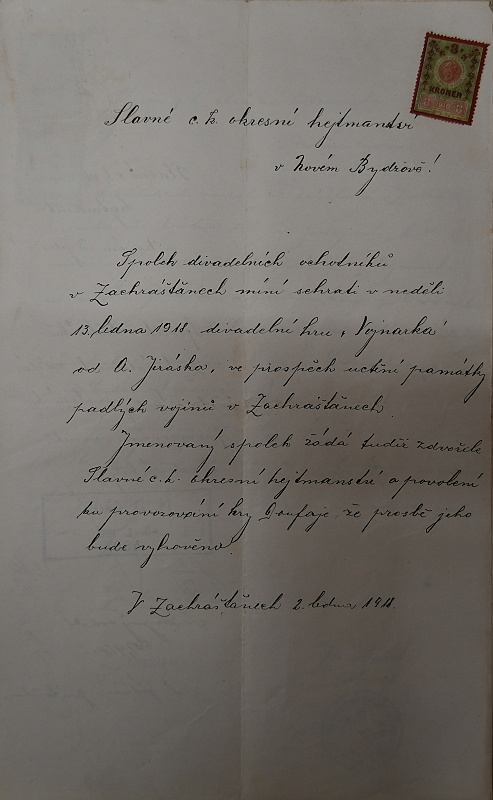 KRONEN
Slavné c. k. okresní hejtmanství
v Novém Bydžově!
Spolek divadelních ochotníků
v Zachrášťanech míní sehrati v neděli
13. ledna 1918. divadelní hru „Vojnarka"
od A. Jiráska, ve prospěch uctění památky
padlých vojínů v Zachrášťanech.
Jmenovaný spolek žádá tudíž zdvořile
Slavné c. k. okresní hejtmanství o povolení
ku provozování hry. Doufaje, že prosbě jeho
bude vyhověno.
V Zachrášťanech 2. ledna 1918.